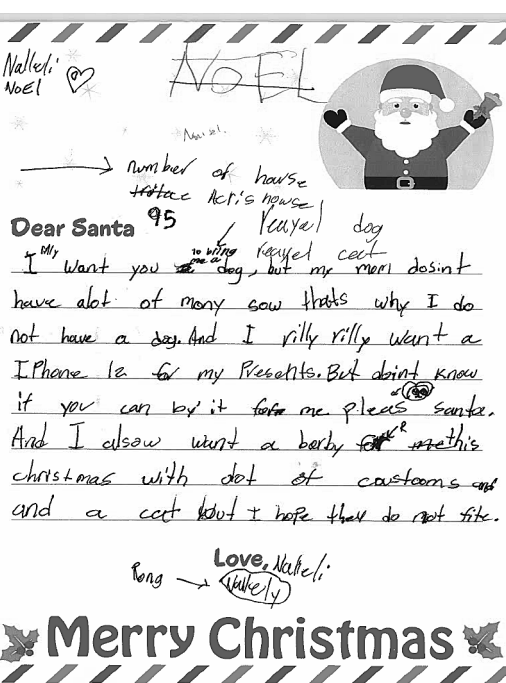 Nalleli
NOEL
NOEL
number of house
Acris house
95
Dear Santa
dog
cat
I My want you to bring me a dog, but my mom dosint
have alot of mony sow thats why I do
not have a dog. And I rilly rilly want a
IPhone 12 for my Presents. But doint know
if you can by it for me pleas santa.
And I alsow want a barby for me this
christmas with dot of coustooms and
and a cat but I hope they do not fite.
Love, Nalleli
Rong → Nallely
Merry Christmas